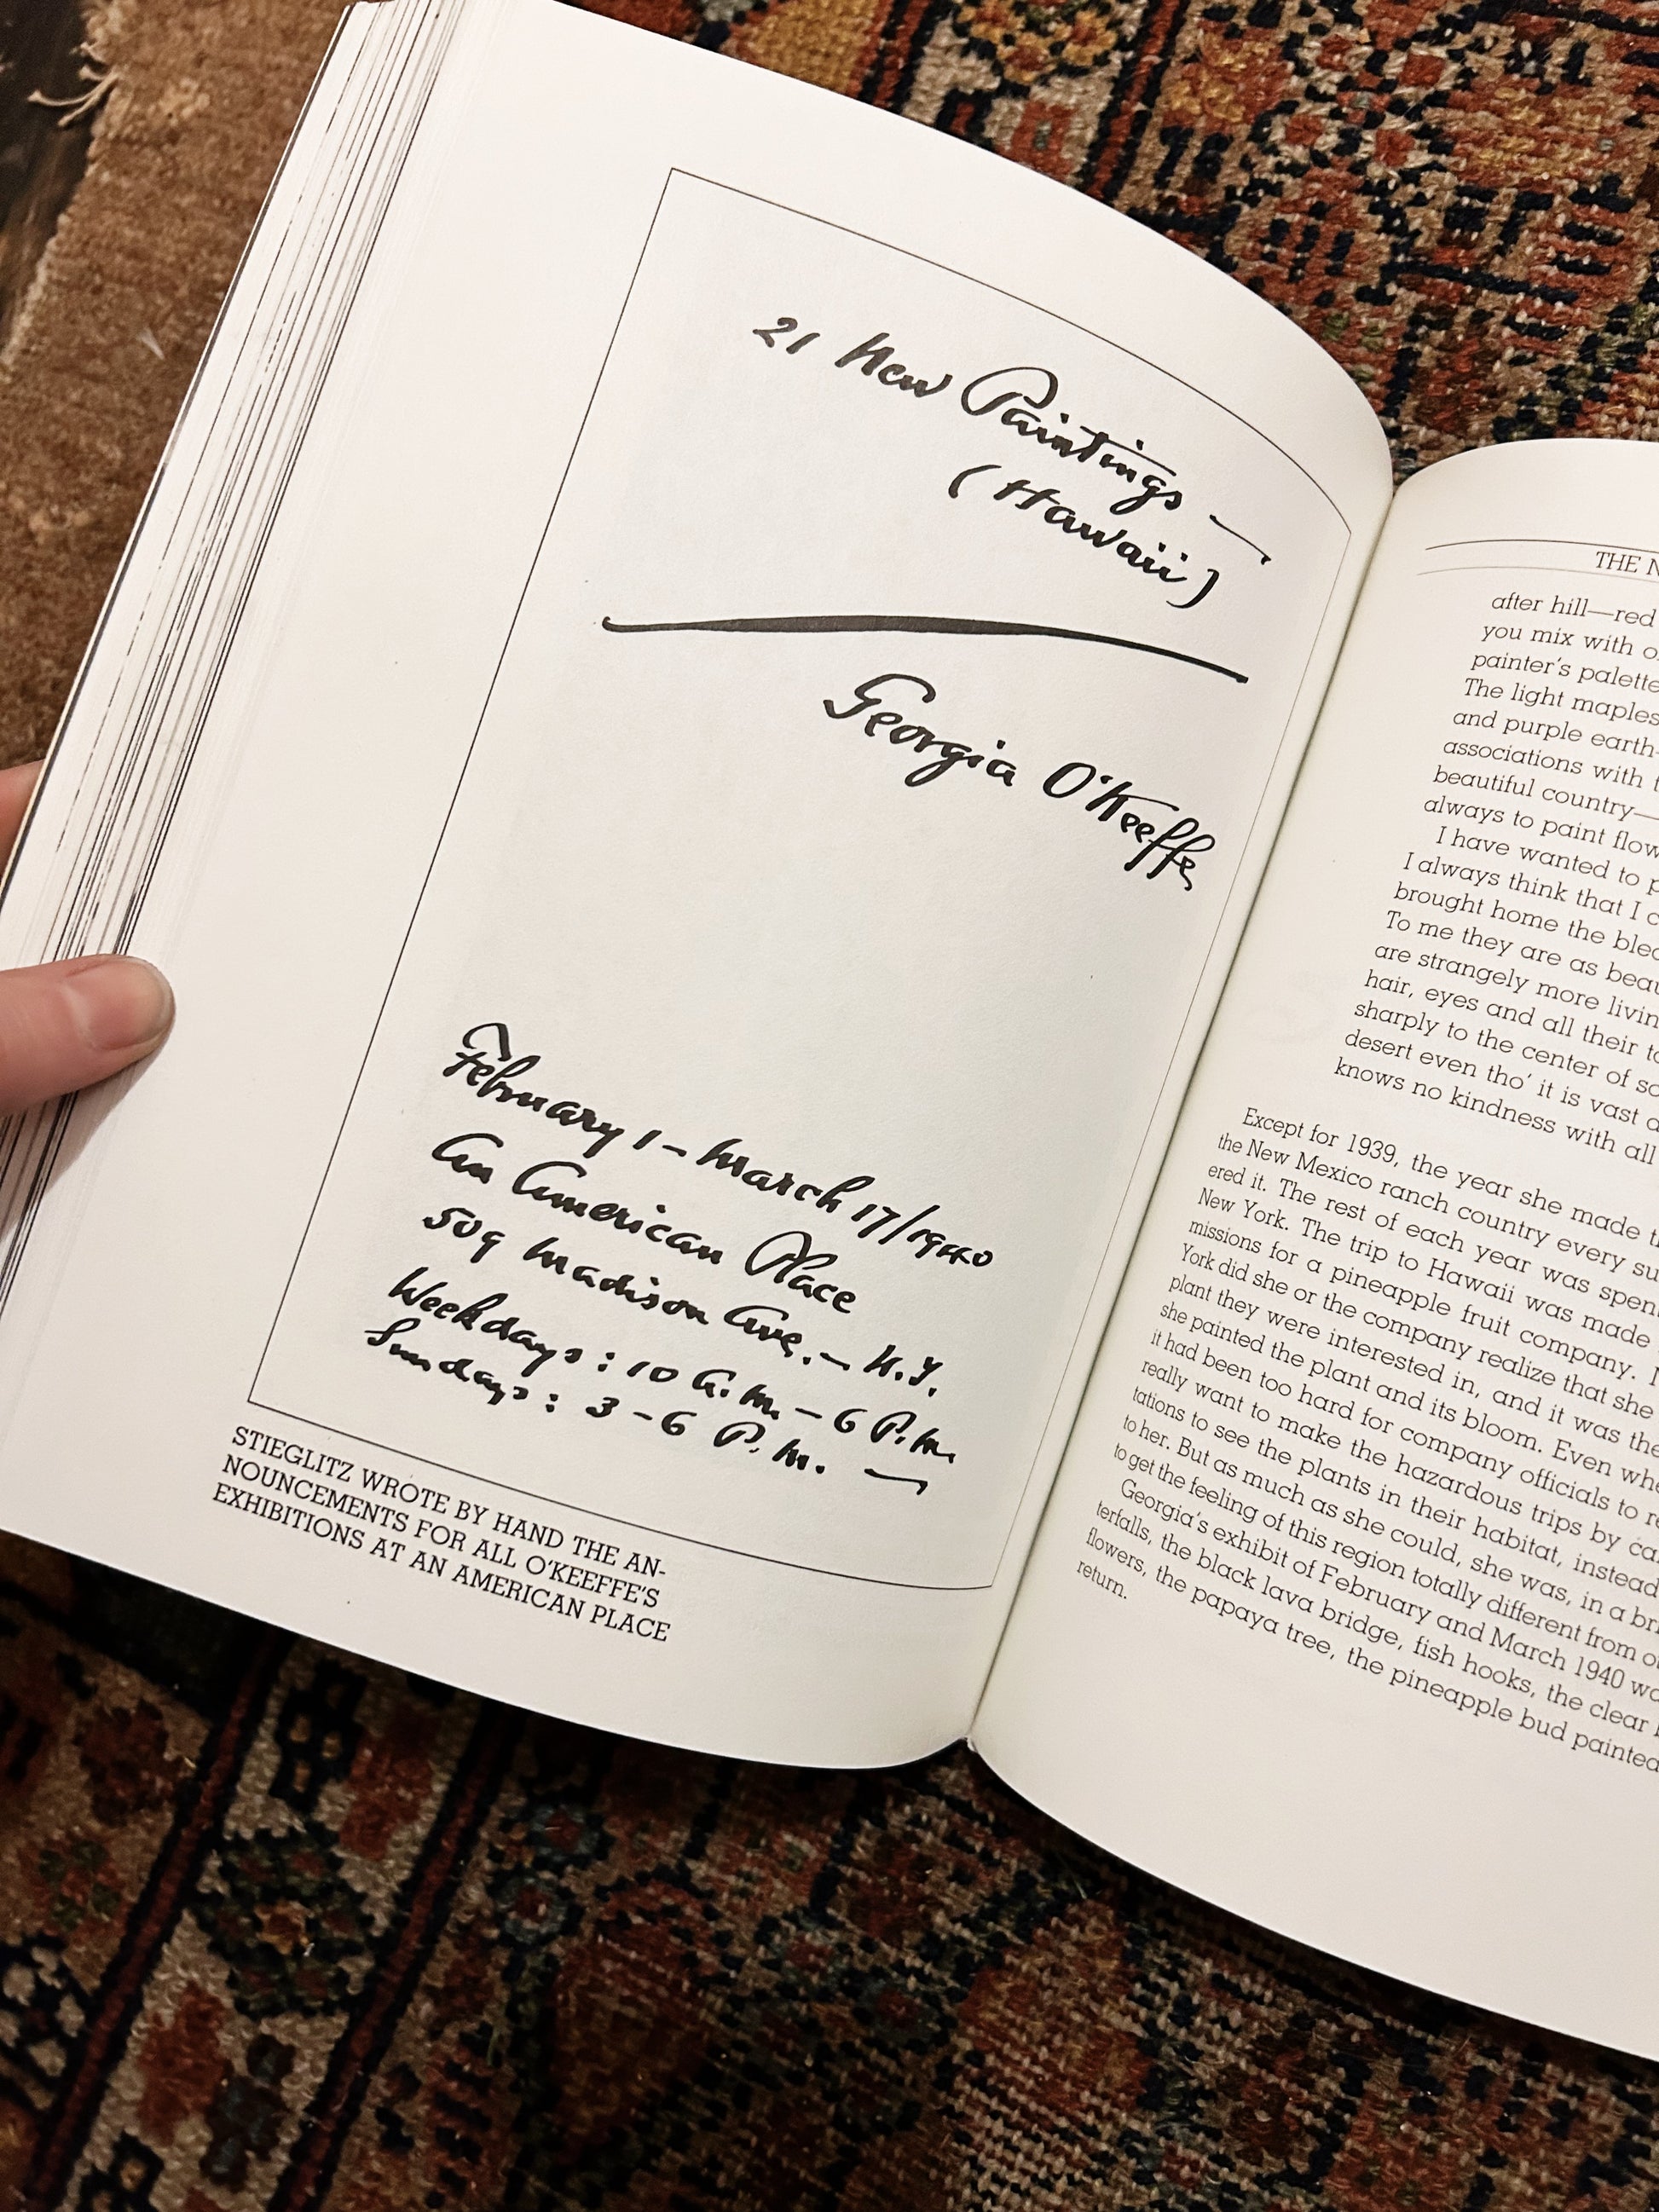 21 New Paintings —
(Hawaii)
Georgia O'Keeffe
February 1 – March 17/1940
An American Place
509 Madison Ave. – N.Y.
Weekdays : 10 A.M. – 6 P.M.
Sundays : 3 – 6 P.M. —
STIEGLITZ WROTE BY HAND THE AN-
NOUNCEMENTS FOR ALL O'KEEFFE'S
EXHIBITIONS AT AN AMERICAN PLACE
THE
after hill—red
you mix with
painter's palette
The light maples
and purple earth
associations with
beautiful country—
always to paint
I have wanted to
I always think that I
brought home the
To me they are as
are strangely more
hair, eyes and all their
sharply to the center of
desert even tho' it is vast
knows no kindness with all
Except for 1939, the year she made
the New Mexico ranch country every
ered it. The rest of each year was
New York. The trip to Hawaii was made
missions for a pineapple fruit company.
York did she or the company realize that she
plant they were interested in, and it was
she painted the plant and its bloom. Even
it had been too hard for company officials to
really want to make the hazardous trips by
tations to see the plants in their habitat, instead
to her. But as much as she could, she was, in a
to get the feeling of this region totally different from
Georgia's exhibit of February and March 1940
terfalls, the black lava bridge, fish hooks, the clear
flowers, the papaya tree, the pineapple bud painted
return.